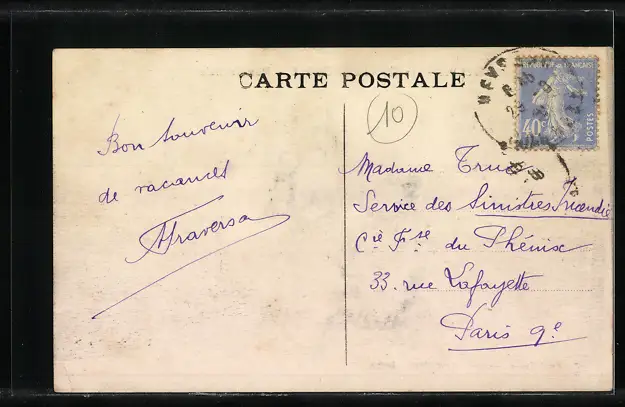 CARTE POSTALE
10
REPUBLIQUE FRANÇAISE
40c
POSTES
Bon souvenir
de vacances
ATraversa
Madame Truc
Service des Sinistres Incendie
Cie Fse du Phénix
33. rue Lafayette
Paris 9e